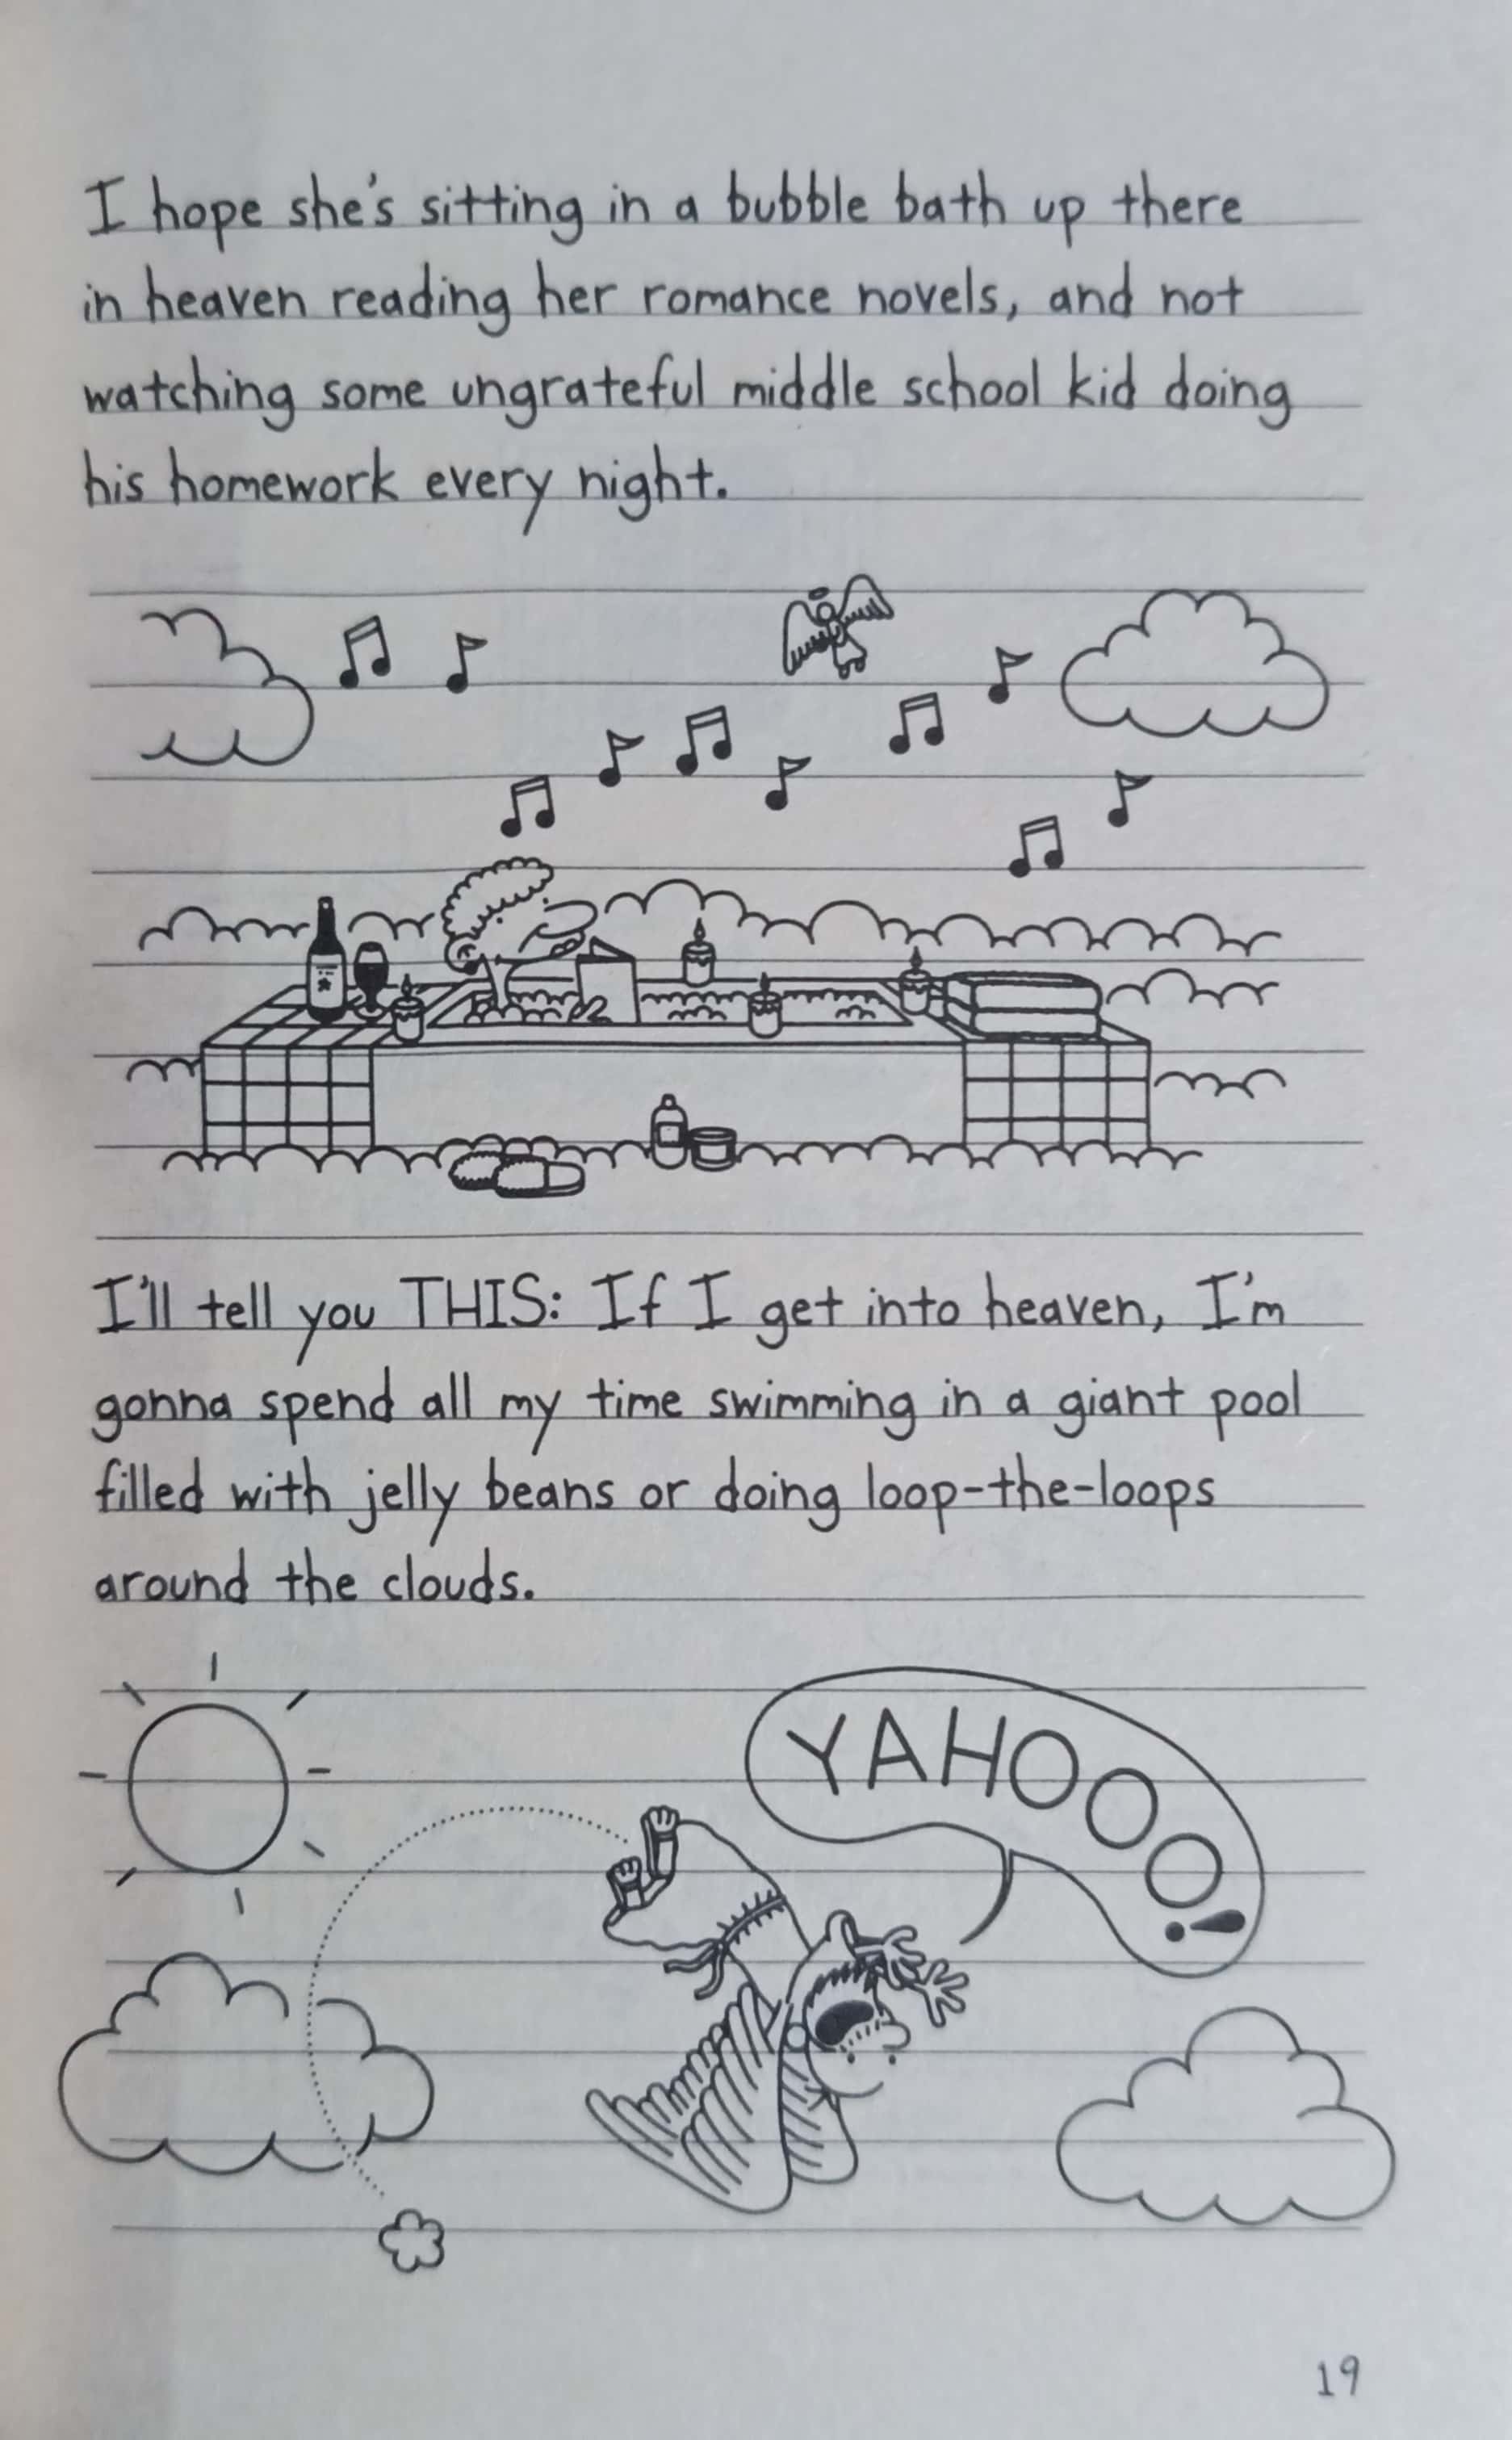 I hope she's sitting in a bubble bath up there
in heaven reading her romance novels, and not
watching some ungrateful middle school kid doing
his homework every night.
I'll tell you THIS: If I get into heaven, I'm
gonna spend all my time swimming in a giant pool
filled with jelly beans or doing loop-the-loops
around the clouds.
YAHOOO!
19